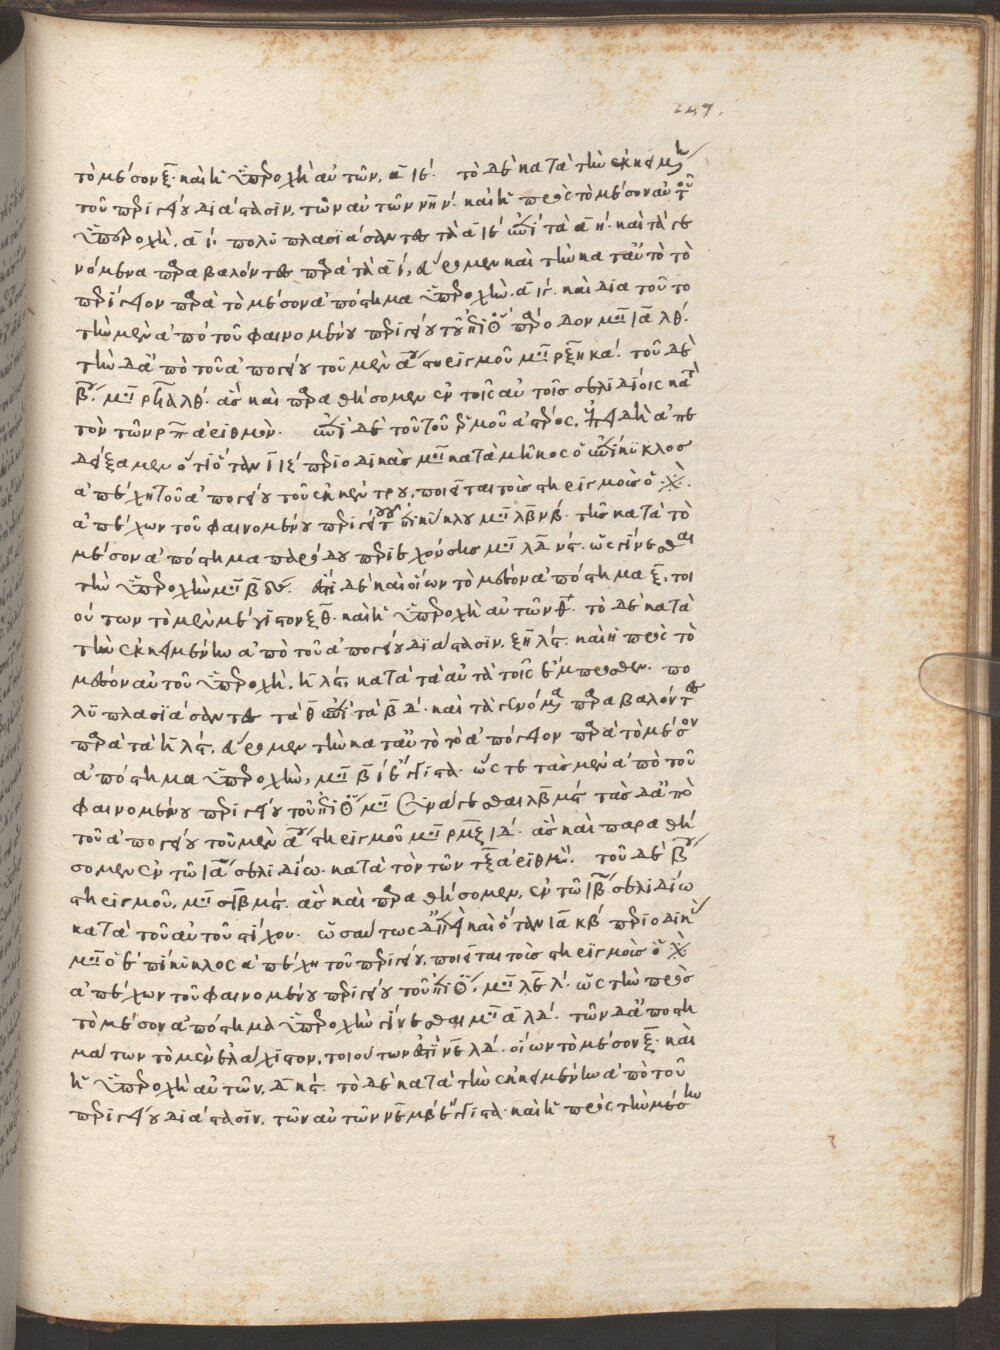 247.
τὸ μέσον ξ̅· καὶ ἡ ὑπεροχὴ αὐτῶν, α̅ ιϛ´· τὸ δὲ κατὰ τὴν ἐκκειμένην
τοῦ περιγείου διάστασιν, τῶν αὐτῶν νη̅ ν´· καὶ ἡ πρὸς τὸ μέσον αὐτοῦ
ὑπεροχὴ, α̅ ι´· πολυπλασιάσαντες τὰ α̅ ιϛ´ ἐπὶ τὰ α̅ η´· καὶ τὰ γε
νόμενα παραβαλόντες παρὰ τὰ α̅ ι´, εὕρομεν καὶ τὴν κατὰ αὐτὸ τὸ
περίγειον παρὰ τὸ μέσον ἀπόστημα ὑπεροχὴν· καὶ διὰ τοῦτο
τὴν μὲν ἀπὸ τοῦ φαινομένου περιγείου τοῦ ἐπικύκλου πάροδον μοι ια̅ λθ´·
τὴν δ' ἀπὸ τοῦ ἀπογείου τοῦ μὲν α̅ου στηριγμοῦ μοι ρξη̅ κα´· τοῦ δὲ
β̅ου, μοι ρϟα̅ λθ´· ἃς καὶ παραθήσομεν ἐν τοῖς αὐτοῖς σελιδίοις κατὰ
τὸν τῶν ρπ̅ ἀριθμὸν· ἐπὶ δὲ τοῦ τοῦ ἑρμοῦ ἀστέρος, ἐπειδὴ ἀπε
δείξαμεν ὅτι ὅταν ι̅ ιϛ´ περιοδικὰς μοι κατὰ μῆκος ὁ ἐπίκυκλος
ἀπέχῃ τοῦ ἀπογείου τοῦ ἐκκέντρου, ποιεῖται τοὺς στηριγμοὺς ὁ
ἀπέχων τοῦ φαινομένου περιγείου τοῦ ἐπικύκλου μοι λβ̅ νβ´· τῆς κατὰ τὸ
μέσον ἀπόστημα παρόδου περιεχούσης μοι λδ̅ νϛ´· ὡς γίνεσθαι
τὴν ὑπεροχὴν μοι β̅ δ´· ἐστὶ δὲ καὶ οἵων τὸ μέσον ἀπόστημα ξ̅, τοι
ούτων τὸ μὲν μέγιστον ξθ̅· καὶ ἡ ὑπεροχὴ αὐτῶν θ̅· τὸ δὲ κατὰ
τὴν ἐκκειμένην ἀπὸ τοῦ ἀπογείου διάστασιν, ξη̅ λϛ´· καὶ ἡ πρὸς τὸ
μέσον αὐτοῦ ὑπεροχὴ, η̅ λϛ´, κατὰ τὰ αὐτὰ τοῖς ἔμπροσθεν· πο
λυπλασιάσαντες τὰ θ̅ ἐπὶ τὰ β̅ δ´· καὶ τὰ γενόμενα παραβαλόντες
παρὰ τὰ η̅ λϛ´, εὕρομεν τὴν κατὰ αὐτὸ τὸ ἀπόγειον παρὰ τὸ μέσον
ἀπόστημα ὑπεροχὴν, μοι β̅ ι´ ἔγγιστα· ὥστε τὰς μὲν ἀπὸ τοῦ
φαινομένου περιγείου τοῦ ἐπικύκλου μοι γίνεσθαι λβ̅ μϛ´ τὰς δ' ἀπὸ
τοῦ ἀπογείου τοῦ μὲν α̅ου στηριγμοῦ μοι ρμζ̅ ιδ´· ἃς καὶ παραθή
σομεν ἐν τῷ ια̅ῳ σελιδίῳ· κατὰ τὸν τῶν τξ̅ ἀριθμὸν· τοῦ δὲ β̅ου
στηριγμοῦ, μοι σιβ̅ μϛ´· ἃς καὶ παραθήσομεν, ἐν τῷ ιβ̅ῳ σελιδίῳ
κατὰ τοῦ αὐτοῦ στίχου· ὡσαύτως δ' ἐπεὶ καὶ ὅταν ια̅ κβ´ περιοδικὰς
μοι ὁ ἐπίκυκλος ἀπέχῃ τοῦ περιγείου, ποιεῖται τοὺς στηριγμοὺς ὁ
ἀπέχων τοῦ φαινομένου περιγείου τοῦ ἐπικύκλου, μοι λε̅ λ´· ὡς τὴν πρὸς
τὸ μέσον ἀπόστημα ὑπεροχὴν γίνεσθαι μοι α̅ λδ´· τῶν δ' ἀποστη
μάτων τὸ μὲν ἐλάχιστον, τοιούτων ἐστὶ νε̅ λδ´· οἵων τὸ μέσον ξ̅· καὶ
ἡ ὑπεροχὴ αὐτῶν, δ̅ κϛ´· τὸ δὲ κατὰ τὴν ἐκκειμένην ἀπὸ τοῦ
περιγείου διάστασιν, τῶν αὐτῶν νε̅ μβ´ ἔγγιστα· καὶ ἡ πρὸς τὴν μέσην